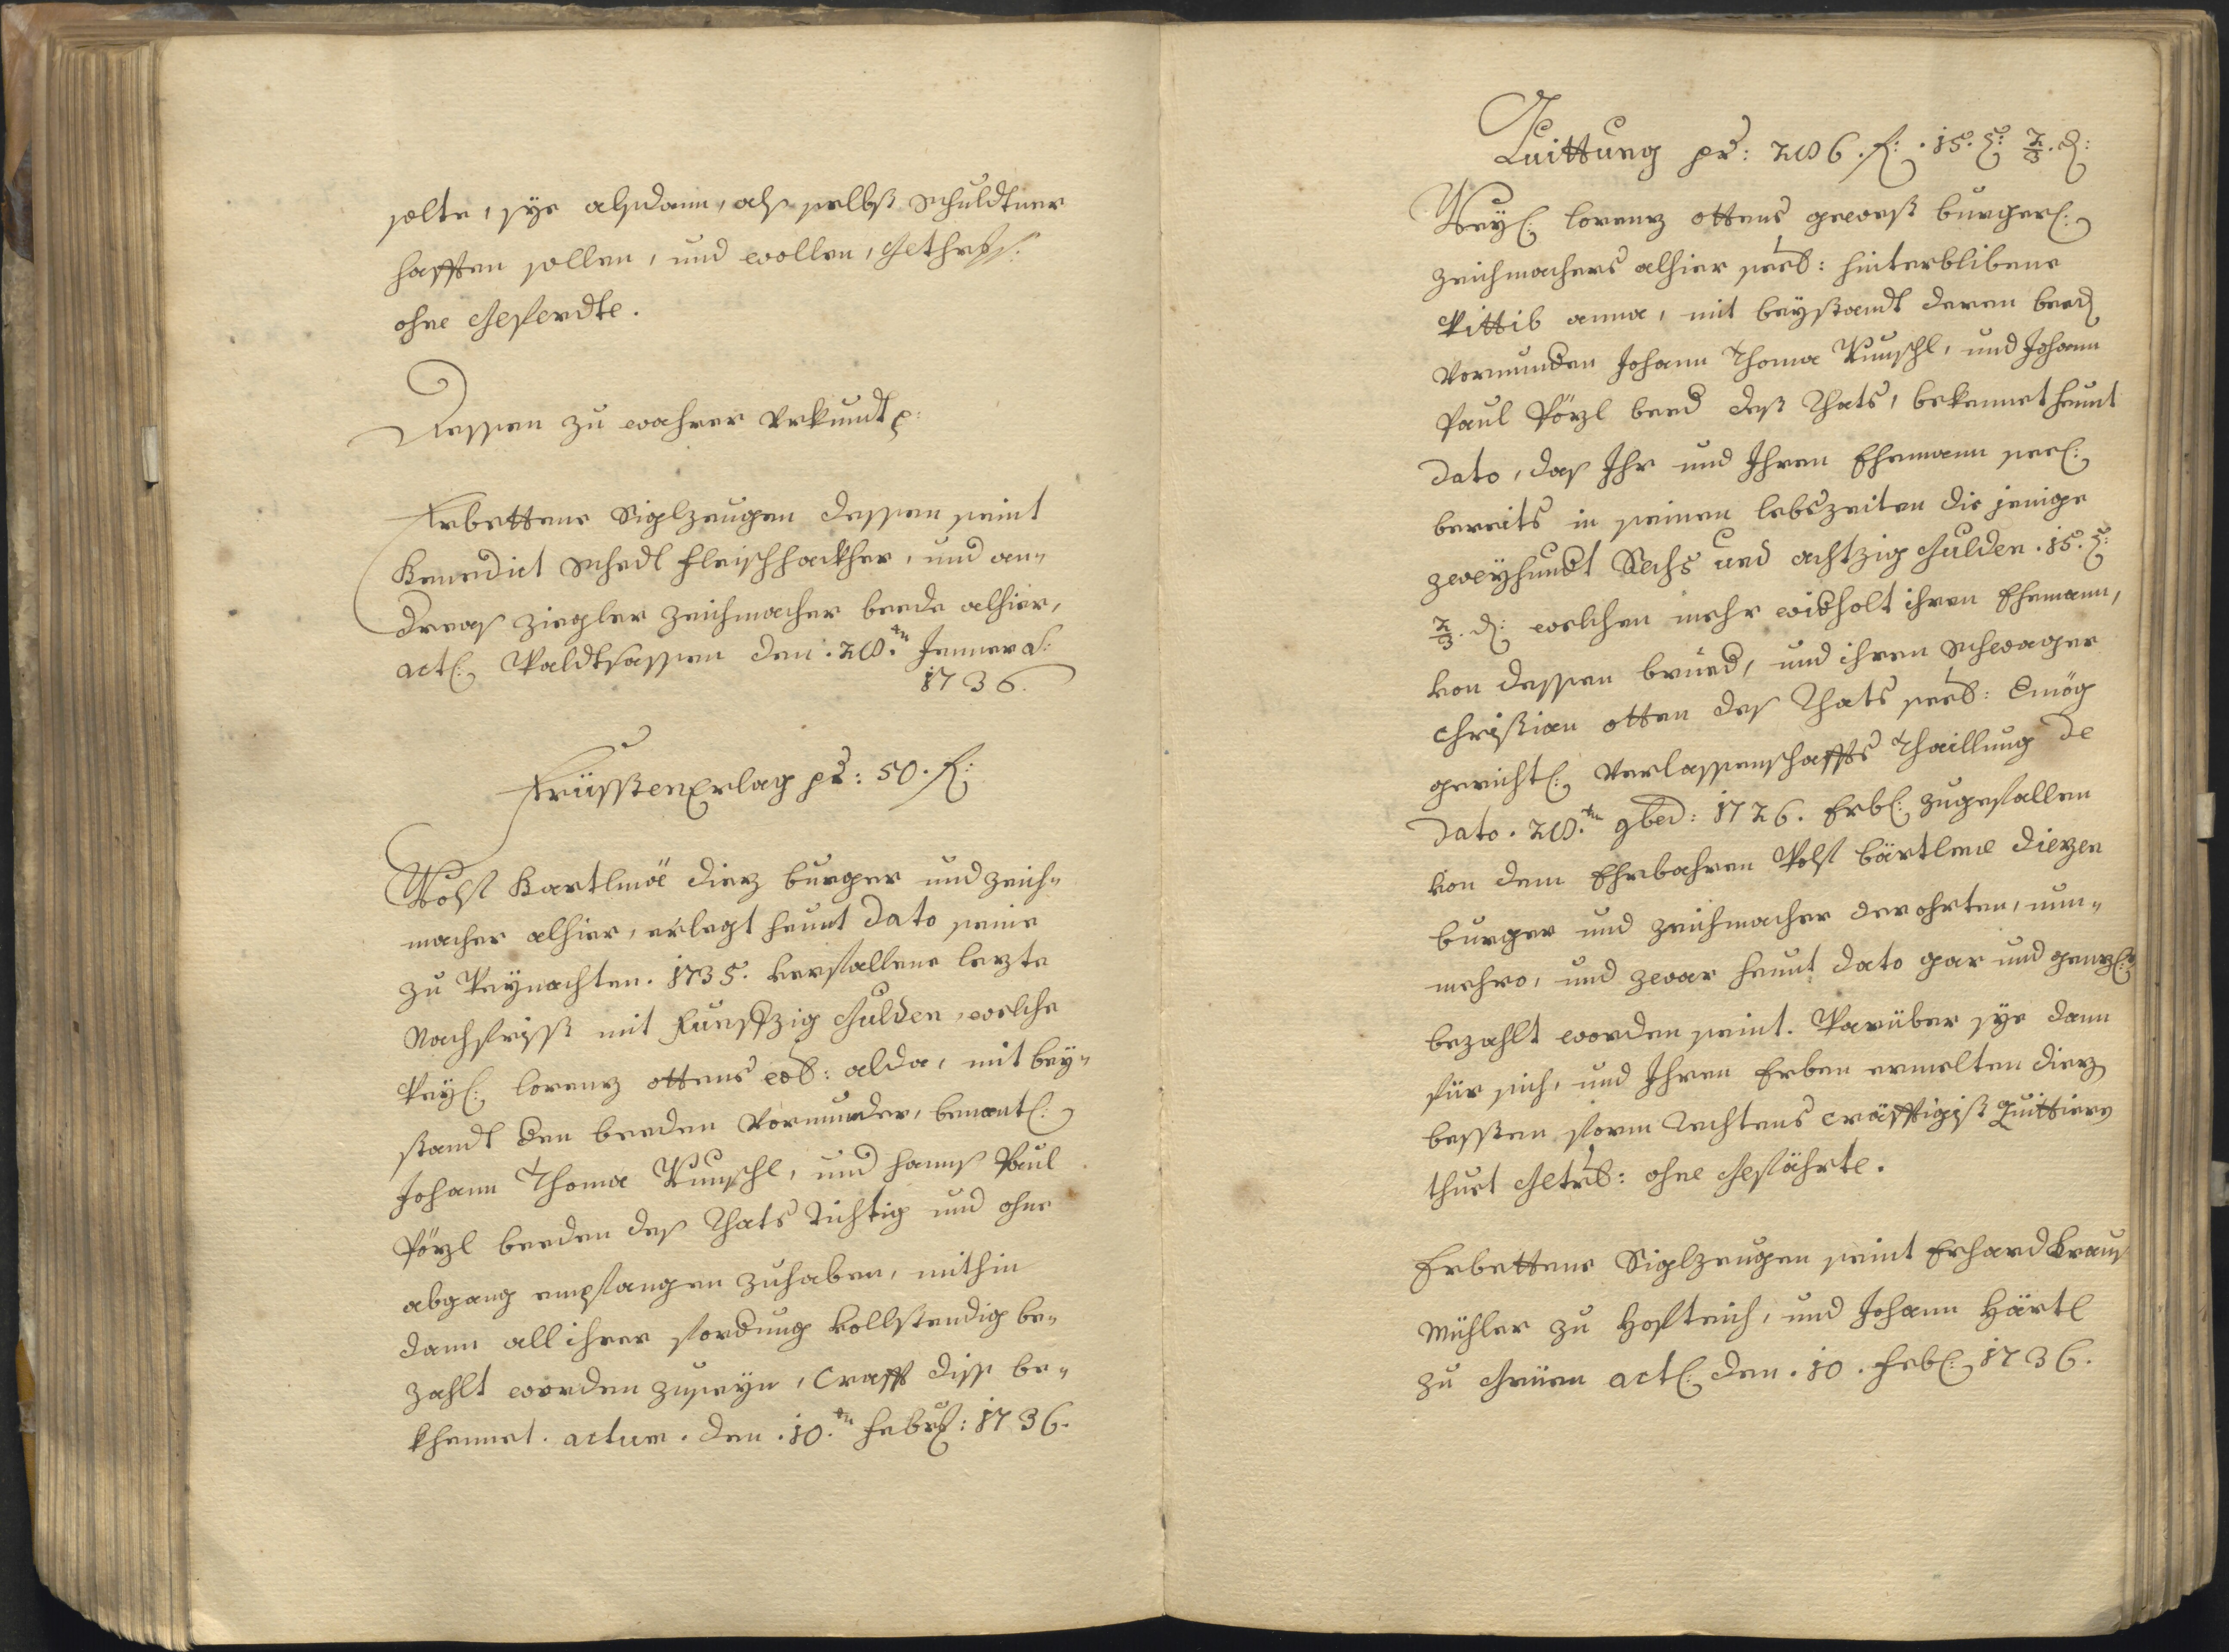 solte, sÿe alßdann, alß selbst schuldtner
hafften sollen, und wollen, Gethrß:
ohne Geferdte.
Dessen zu wahrer Urkundt p:
Erbettene Siglzeugen dessen seint
Benedict Schedl fleischhackher, und an-
dreas Ziegler Zeichmacher beede alhier,
act: Waldtsassen den . 28.ten Jenner a:
1736.
Früssten Erlag pr: 50. f:
Wolf Bartlmäe Diez burger und Zeich-
macher alhier, erlegt heunt dato seine
zu Weÿnachten . 1735. verfallene lezte
Nachfrisst mit Funffzig Gulden, welche
Weÿl: lorenz ottens wb: alda, mit beÿ-
standt der beeden Vormunder, benantl:
Johann Thoma Wunschl, und hannß Paul
Pözl beeden deß Rhats Richtig und ohne
abgang empfangen zuhaben, mithin
dann all ihrer fordrung vollstendig be-
zahlt worden zuseÿn, Crafft diss be-
khennet. actum . den . 10.ten Febr: 1736.
Quittung pr: 286. f: . 15. x: 2/3. d:
Weÿl: lorenz ottens gewest burgerl:
Zeichmachers alhier seel: hinterblibene
Wittib anna, mit beÿstandt deren beed
Vormunden Johann Thoma Wunschl, und Johann
Paul Pözl beed deß Rhats, bekennet heunt
dato, das Ihr und Ihren Ehemann seel:
bereits in seinen lebszeiten die jenige
zweÿhundt Sechs und achtzig Gulden . 15. x:
2/3. d: welchen mehr widholt ihren Ehemann,
von dessen brued, und ihren schwager
Christian otten des Rhats seel: Vmög
gerichtl: Verlassenschaffts Thaillung de
dato . 28.ten 9ber: 1726. Erbl: zugefallen
von dem Ehrbahren Wolf bärtlme Diezen
burger und Zeichmacher der ohrten, nun-
mehro, und zwar heunt dato gar und genzl:
bezahlt worden seint. Warüber sÿe dann
für sich, und Ihren Erben ermelten Diez
bessten form Rechtens cräfftigist Quittiern
thuet Getrl: ohne Gefährte.
Erbettene Siglzeugen seint Erhard Krauß
Mühler zu Hofteich, und Johann Härtl
zu Grüen act: den . 10. Feb: 1736.